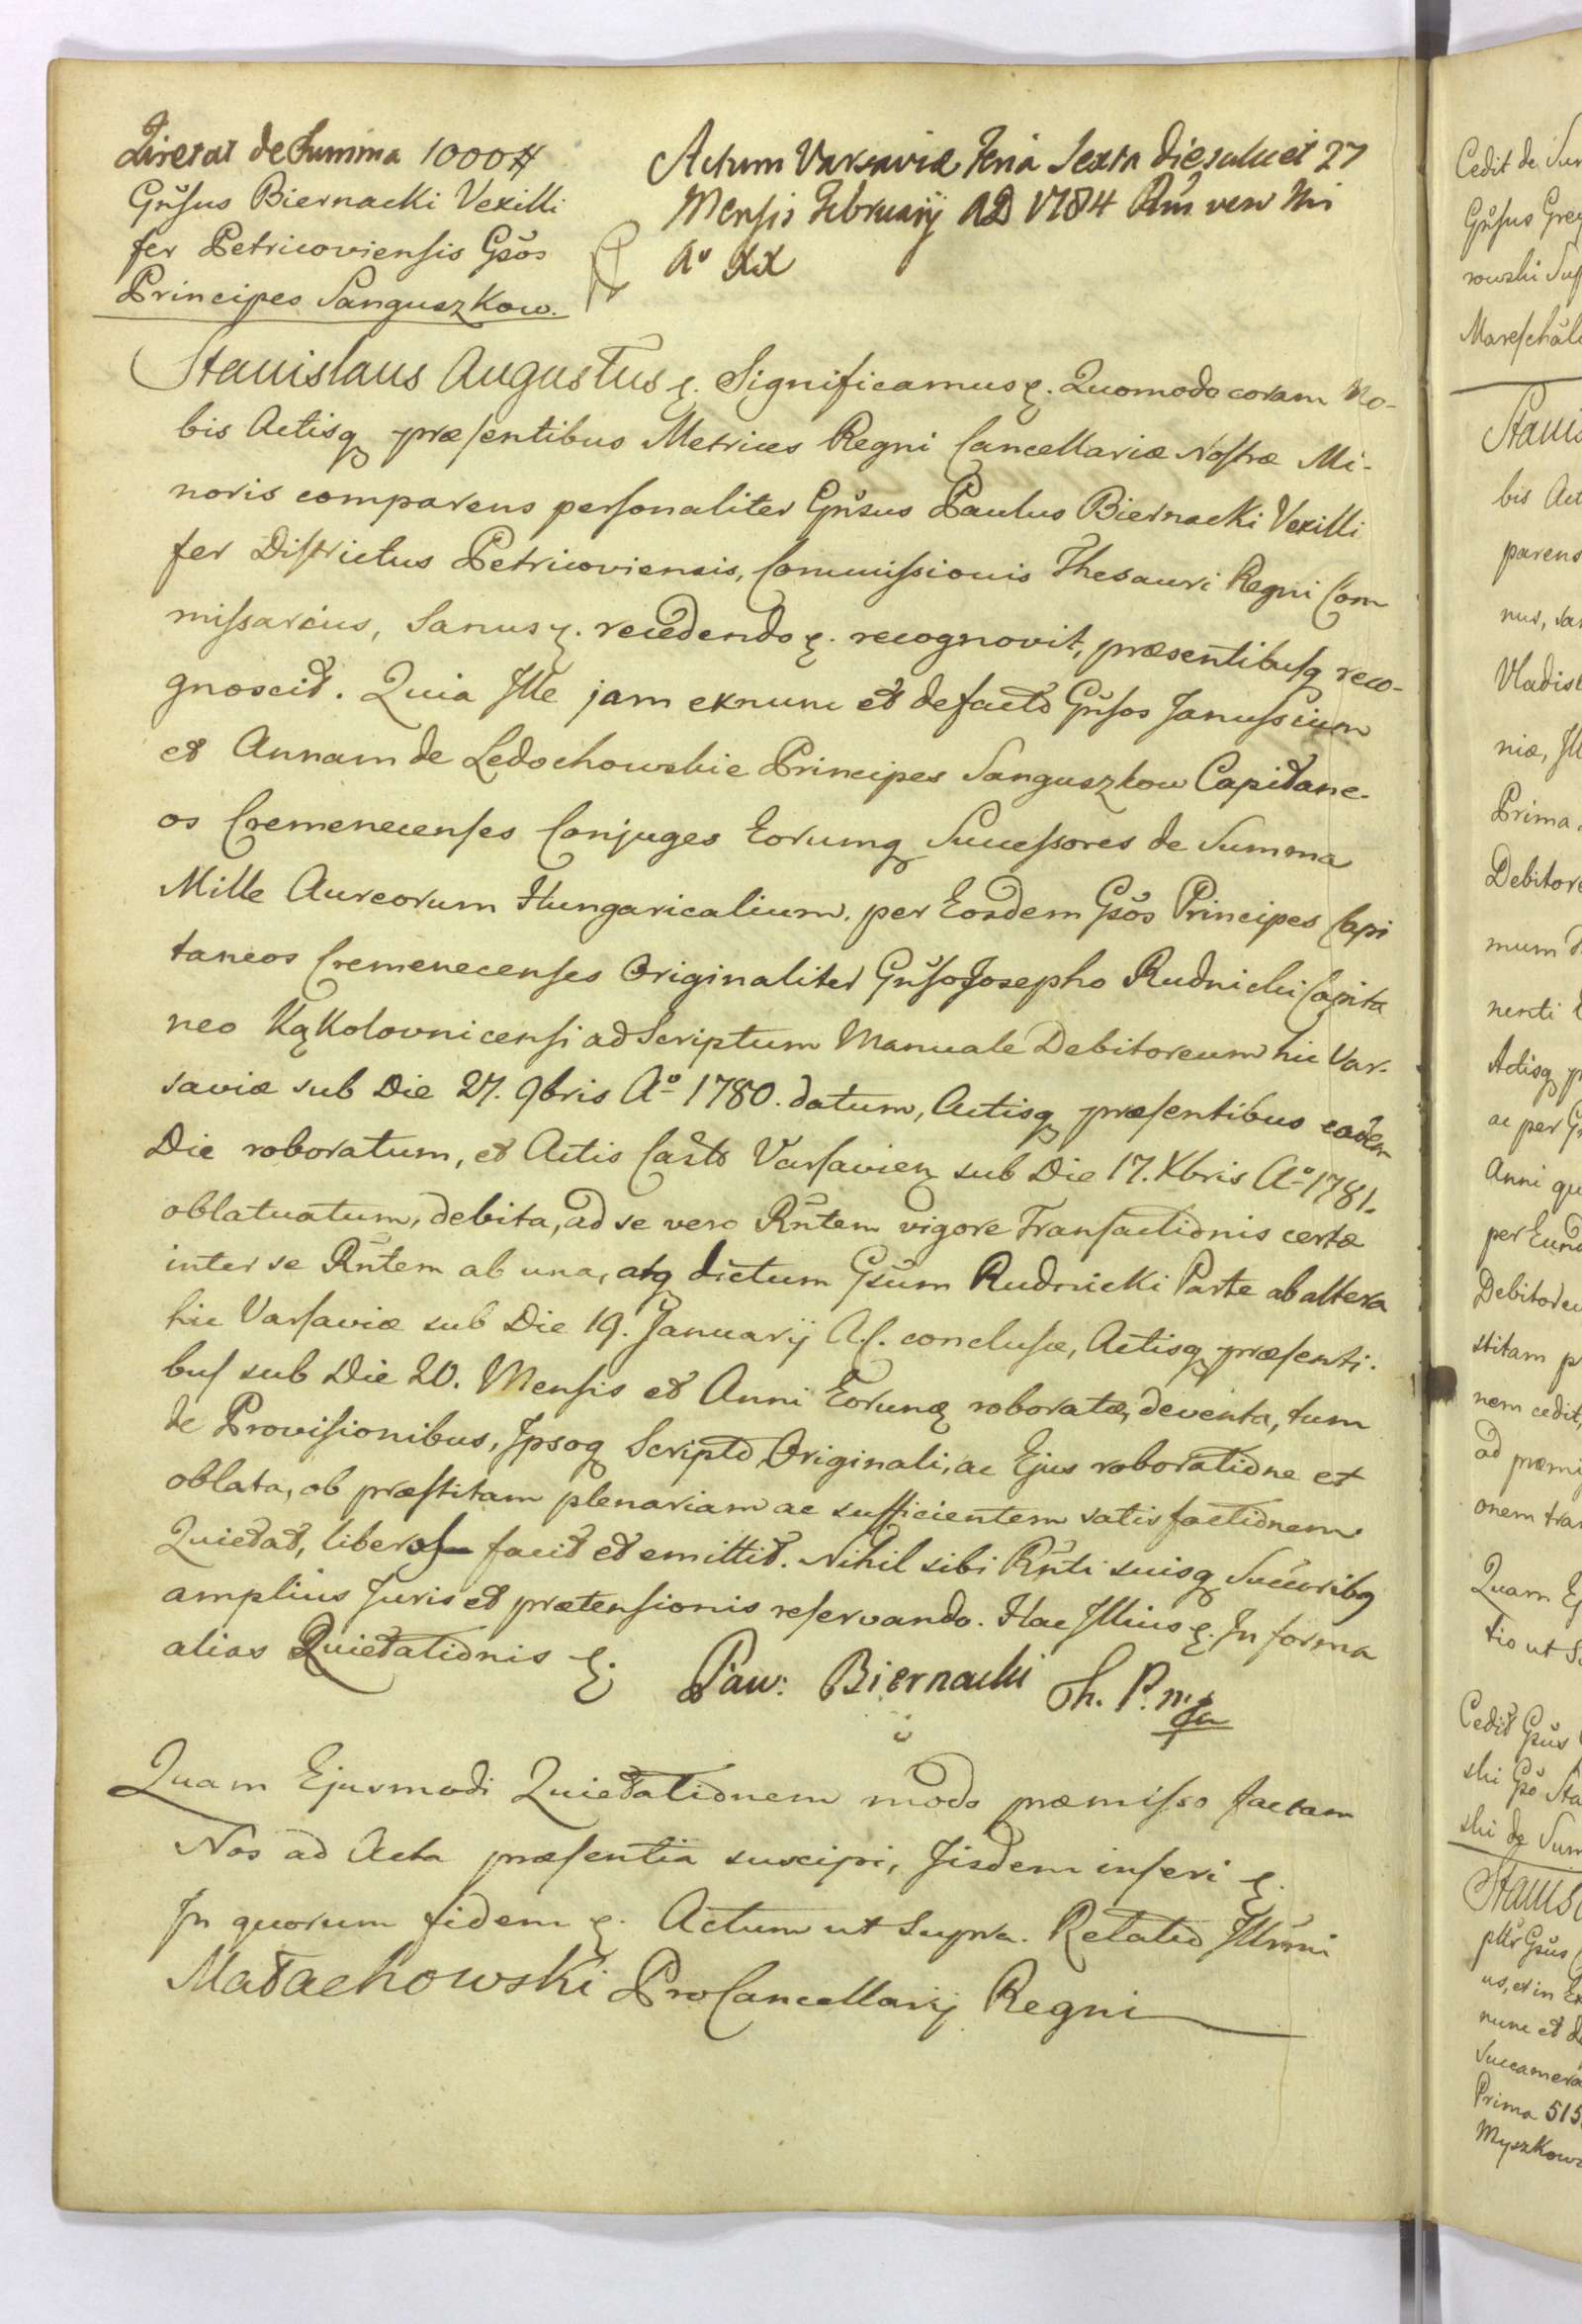 Quietat de Summa 1000 #
Gnsus Biernacki Vexilli
fer Petricoviensis Gsos
Principes Sanguszkow.
Actum Varsaviæ Feria Sexta die scilicet 27
Mensis Februarij AD 1784 Rni vero Nri
Aº XX
Stanislaus Augustus &. Significamus &. Quomodo coram No-
bis Actisq præsentibus Metrices Regni Cancellariæ Nostræ Mi-
noris comparens personaliter Gnsus Paulus Biernacki Vexilli
fer Districtus Petricoviensis, Commissionis Thesauri Regni Com
missarius, Sanus &. recedendo &. recognovit, præsentibusq reco-
gnoscit. Quia Ille jam exnunc et defacto Gnsos Janussium
et Annam de Ledochowskie Principes Sanguszkow Capitane-
os Cremenecenses Conjuges Eorumq Successores de Summa
Mille Aureorum Hungaricalium. per Eosdem Gsos Principes Capi
taneos Cremenecenses Originaliter Gnso Josepho Rudnicki Capita
neo Kąkolovnicensi ad Scriptum Manuale Debitoreum hic Var-
saviæ sub Die 27. 9bris Aº 1780. datum, Actisq præsentibus eadem
Die roboratum, et Actis Castr Varsavien sub Die 17. Xbris Aº 1781.
oblatuatum, debita, ad se vero Rntem vigore Transactionis certæ
inter se Rntem ab una, atq dictum Gsum Rudnicki Parte ab altera
hic Varsaviæ sub Die 19. Januarij A.C. conclusæ, Actisq præsenti-
bus sub Die 20. Mensis et Anni Eorunq roboratæ, deventa, tum
de Provisionibus, Ipsoq Scripto Originali, ac Ejus roboratione et
oblata, ob præstitam plenariam ac sufficientem satisfactionem
Quietat, liberos facit et emittit. Nihil sibi Rnti suisq Succoribq
amplius Juris et prætensionis reservando. Hac Illius &. In forma
alias Quietationis &.
Paw: Biernacki Ch. P. mp
Quam Ejusmodi Quietationem modo præmisso factam
Nos ad Acta præsentia suscipi, Jisdem inseri &.
In quorum fidem &. Actum ut Supra. Relatio Illmi
Małachowski ProCancellarij Regni
Cedit de Sum
rowski Suf
Stanis
bis Act
parens
nus, san
Vladisl
niæ, Ill
Prima
Debitore
mum
nenti
Actisq p
ac per G
Anni qu
per Eund
Debitoreu
stitam p
nem cedit,
ad præmi
onem tran
Quam Ej
tio ut S
Cedit Gsus
ski Gso Sta
ski de Sum
Stanis
us, et in Ex
nunc et de
Succamera
Prima 515
Myszkows